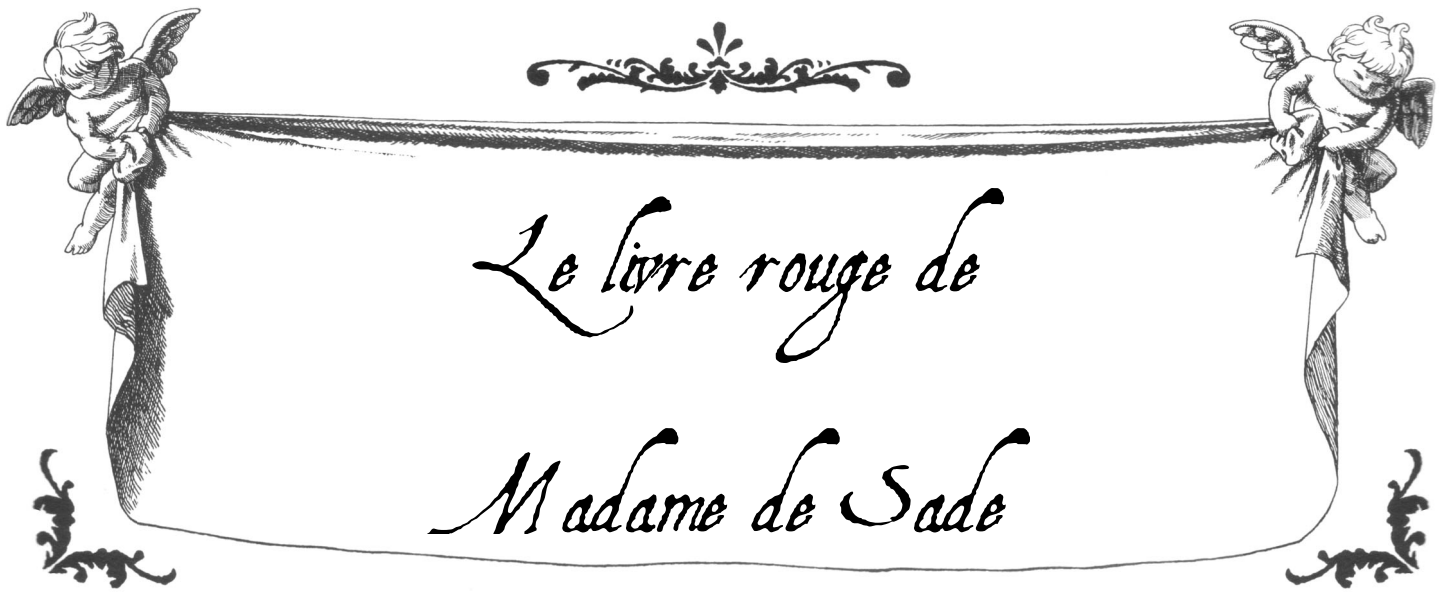 Le livre rouge de
Madame de Sade